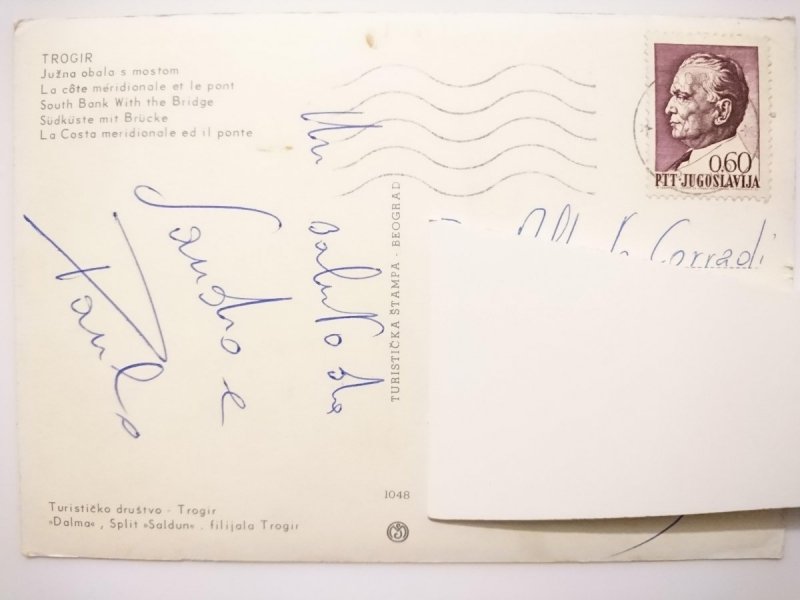 TROGIR
Južna obala s mostom
La côte méridionale et le pont
South Bank With the Bridge
Südküste mit Brücke
La Costa meridionale ed il ponte
Un saluto da
Sandro e
Paulo
TURISTIČKA ŠTAMPA - BEOGRAD
1048
Turističko društvo - Trogir
»Dalma«, Split »Saldun«. filijala Trogir
0.60
PTT-JUGOSLAVIJA
Corradi